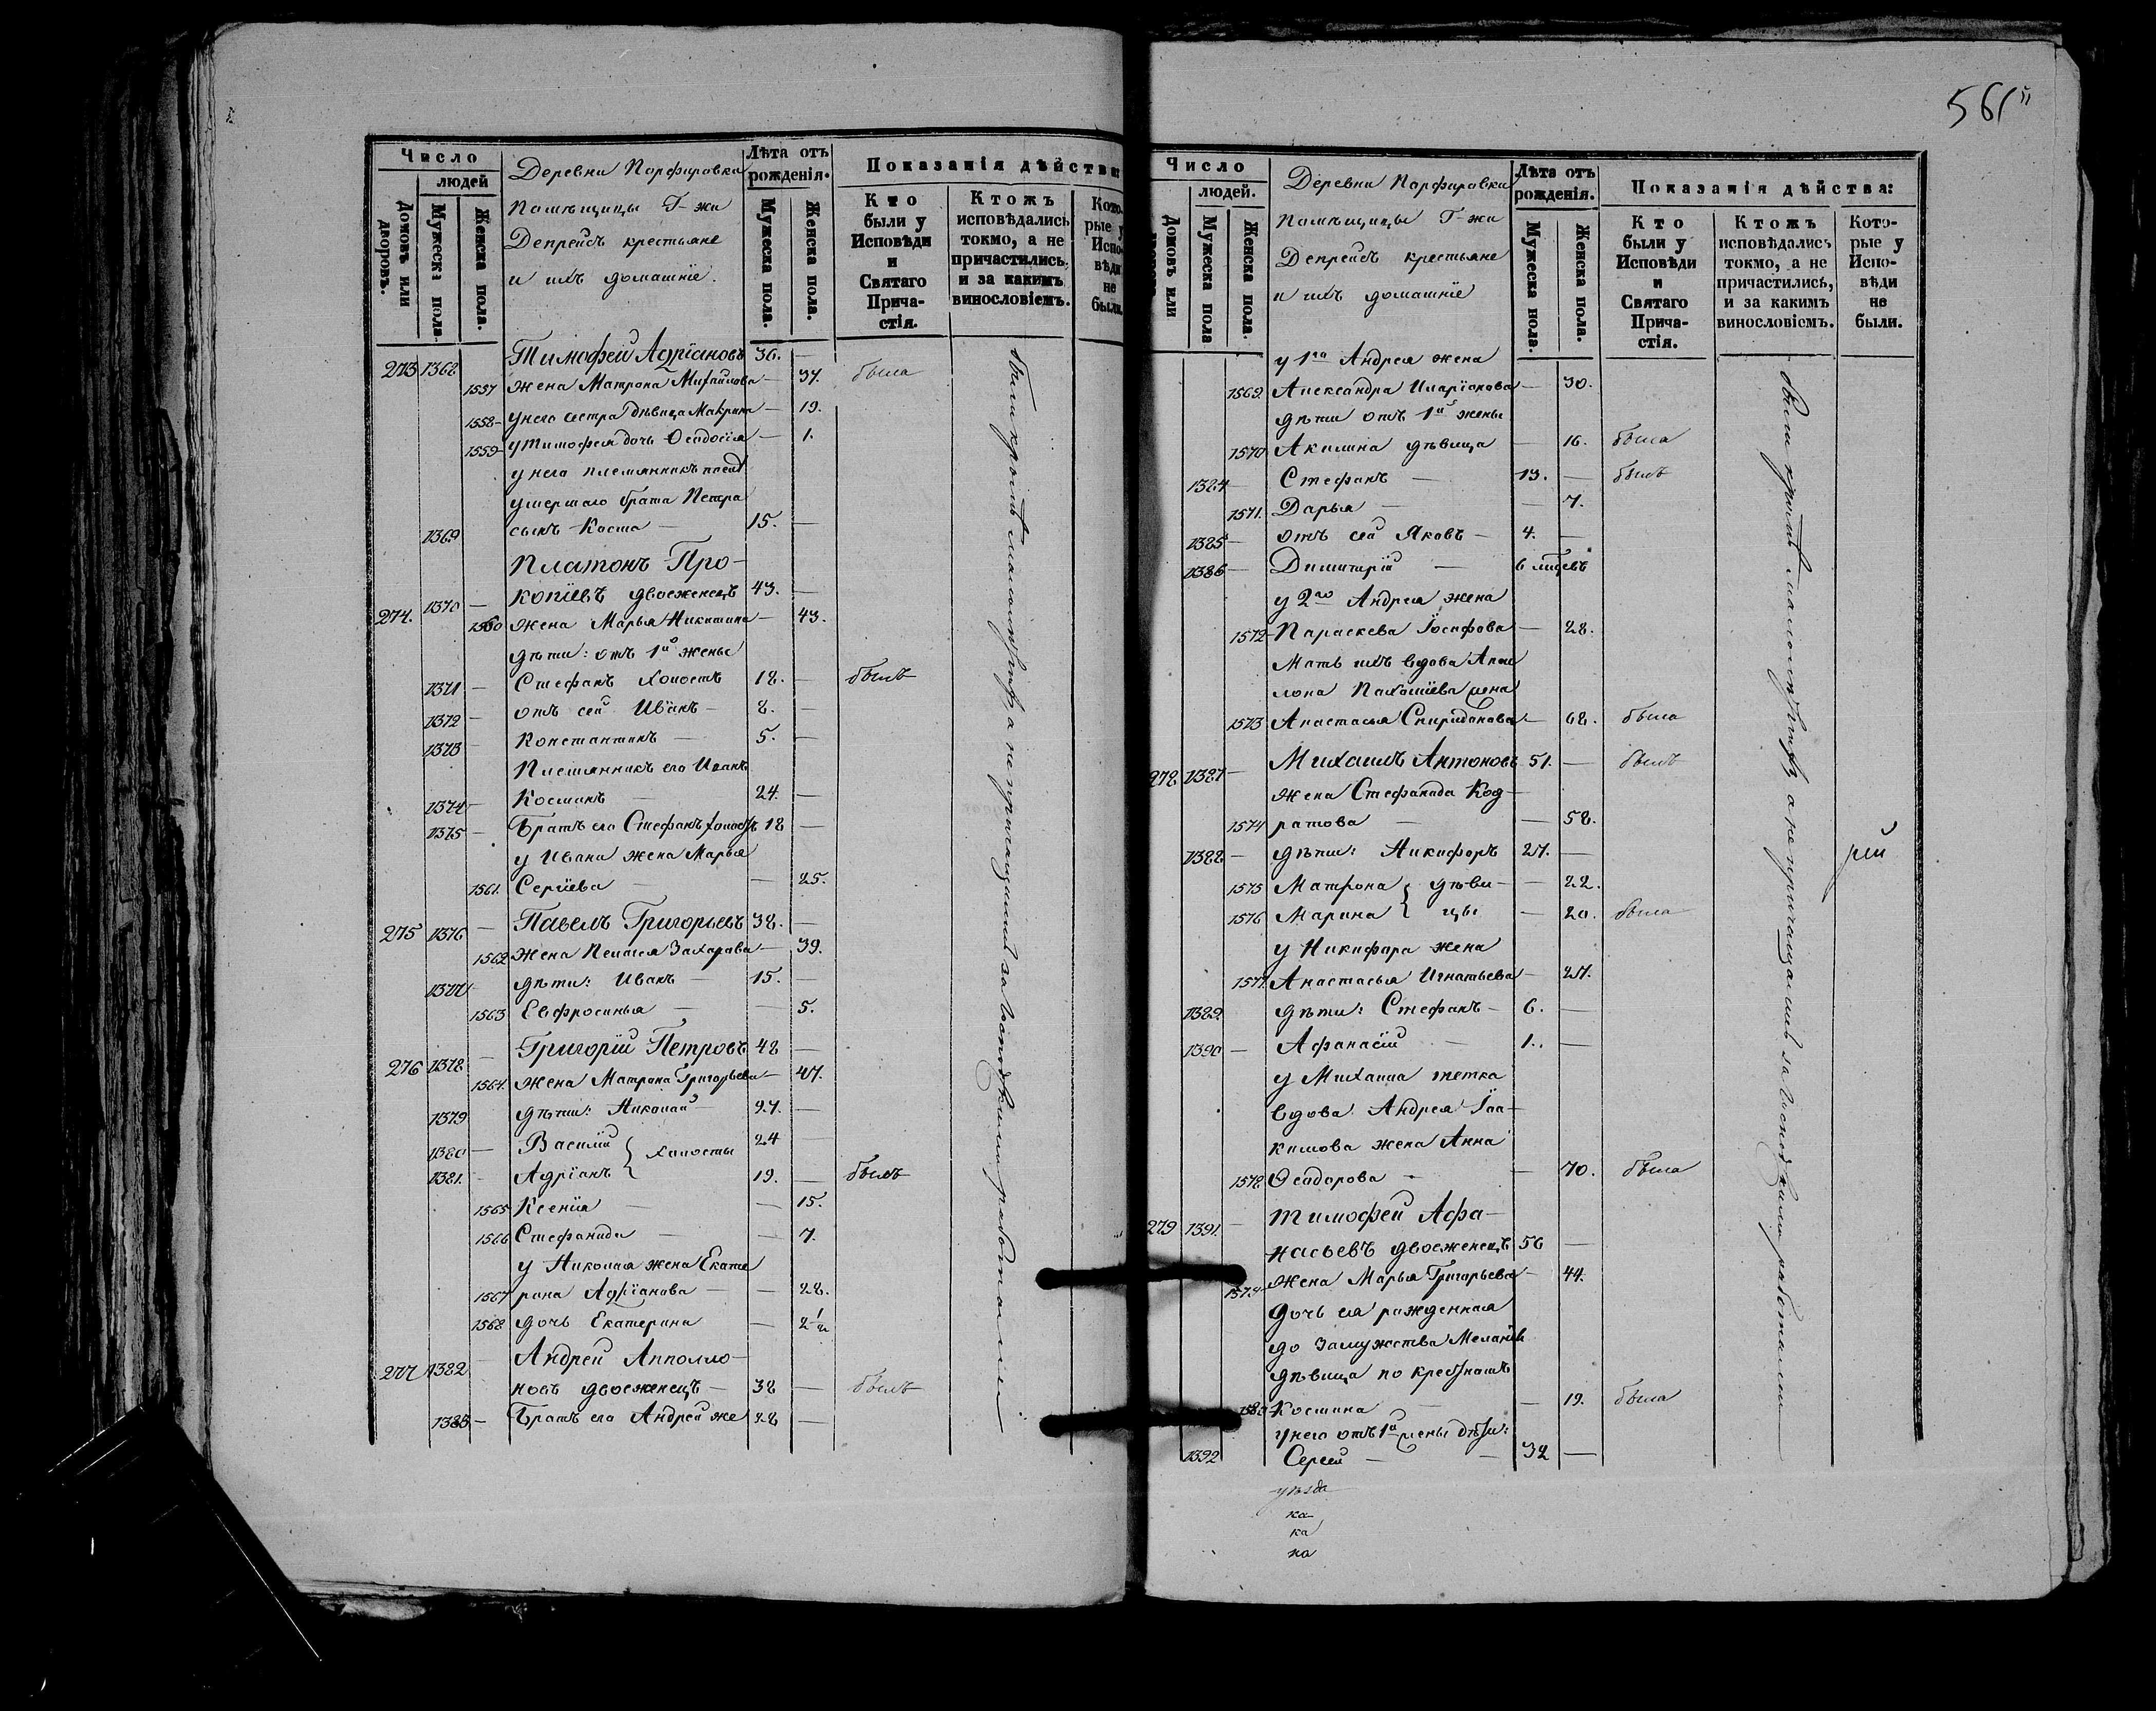 Число
людей
Домовъ или дворовъ.
Мужеска пола.
Женска пола.
Деревни Порфировки
Помѣщицы Г-жи
Депрейсъ крестьяне
и ихъ домашніе.
Лѣта отъ рожденія.
Мужеска пола.
Женска пола.
Показанія дѣйства:
Кто были у Исповѣди и Святаго Причастія.
Ктожъ исповѣдались токмо, а не причастились, и за какимъ винословіемъ.
Которые у Исповѣди не были.
273 1368 Тимофей Адріановъ 36. —
1557 жена Матрона Михайлова — 37. была
1558 у него сестра дѣвица Макрина — 19.
1559 у Тимофея дочь Ѳеодосія — 1.
у него племянникъ послѣ
умершаго брата Петра
1369 сынъ Косма — 15. —
Платонъ Про-
274. 1370 — копіевъ двоеженецъ 43. —
1560 жена Марья Никитина — 43.
дѣти: отъ 1й жены
1371 — Стефанъ холостъ 18. — былъ
1372 — отъ сей Иванъ — 8. —
1373 — Константинъ — 5. —
Племянникъ его Иванъ
1374 — Косминъ — 24. —
1375 — Братъ его Стефанъ холостъ 18 —
у Ивана жена Марья
1561. Сергіева — — 25.
275 1376 — Павелъ Григорьевъ 38. —
1562 жена Пелагея Захарова — 39.
1377 — дѣти: Иванъ — 15. —
1563 Евфросинья — — 5.
276 1378 — Григорій Петровъ 48 —
1564. жена Матрона Григорьева — 47.
1379 дѣти: Николай — 27. —
1380 — Василій } холосты 24 —
1381. — Адріанъ } 19. — былъ
1565 Ксенія — — 15.
1566 Стефанида — — 7.
у Николая жена Екате
1567 рина Адріанова — — 28.
1568 дочь Екатерина — 2 1/2
277 1382 Андрей Апполло-
новъ двоеженецъ — 38 — былъ
1383 — Братъ его Андрей же 28 —
были кромѣ малолѣтнихъ, а не причащались за господскими работами
561
Число
людей.
Домовъ или
Мужеска пола
Женска пола.
Деревни Порфировки
Помѣщицы Г-жи
Депрейсъ крестьяне
и ихъ домашніе
Лѣта отъ рожденія.
Мужеска пола.
Женска пола.
Показанія дѣйства:
Кто были у Исповѣди и Святаго Причастія.
Ктожъ исповѣдались токмо, а не причастились, и за какимъ винословіемъ.
Которые у Исповѣди не были.
у 1го Андрея жена
1569. Александра Иларіонова — 30.
дѣти отъ 1й жены
1570 Акилина дѣвица — 16. была
1384 — Стефанъ — 13. — былъ
1571. Дарья — — 7.
1385 — отъ сей Яковъ — 4. —
1386 — Димитрій — 6 мѣсяцевъ
у 2го Андрея жена
1572 Параскева Іосифова — 28.
Мать ихъ вдова Апол
лона Пахоміева жена
1573 Анастасья Спиридонова — 68. была
278 1387 — Михаилъ Антоновъ 51. — былъ
жена Стефанида Код-
1574 ратова — — 58.
1388 — дѣти: Никифоръ 27. —
1575 Матрона } дѣви- — 22.
1576 Марина } цы — 20. была
у Никифора жена
1577 Анастасья Игнатьева — 27.
1389. дѣти: Стефанъ — 6. —
1390 — Афанасій — 1. —
у Михаила тетка
вдова Андрея Іоа-
кимова жена Анна
1578 Ѳеодорова — — 70. была
279 1391. — Тимофей Афа-
насьевъ двоеженецъ 56 —
1579 жена Марья Григорьева — 44.
дочь ея рожденная
до замужства Меланія
дѣвица по крестномъ
1580 Космина — — 19. была
у него отъ 1й жены дѣти:
1392 Сергей — — 32 —
уѣзда
ка
ка
на
рей
были кромѣ малолѣтнихъ, а не причащались за господскими работами